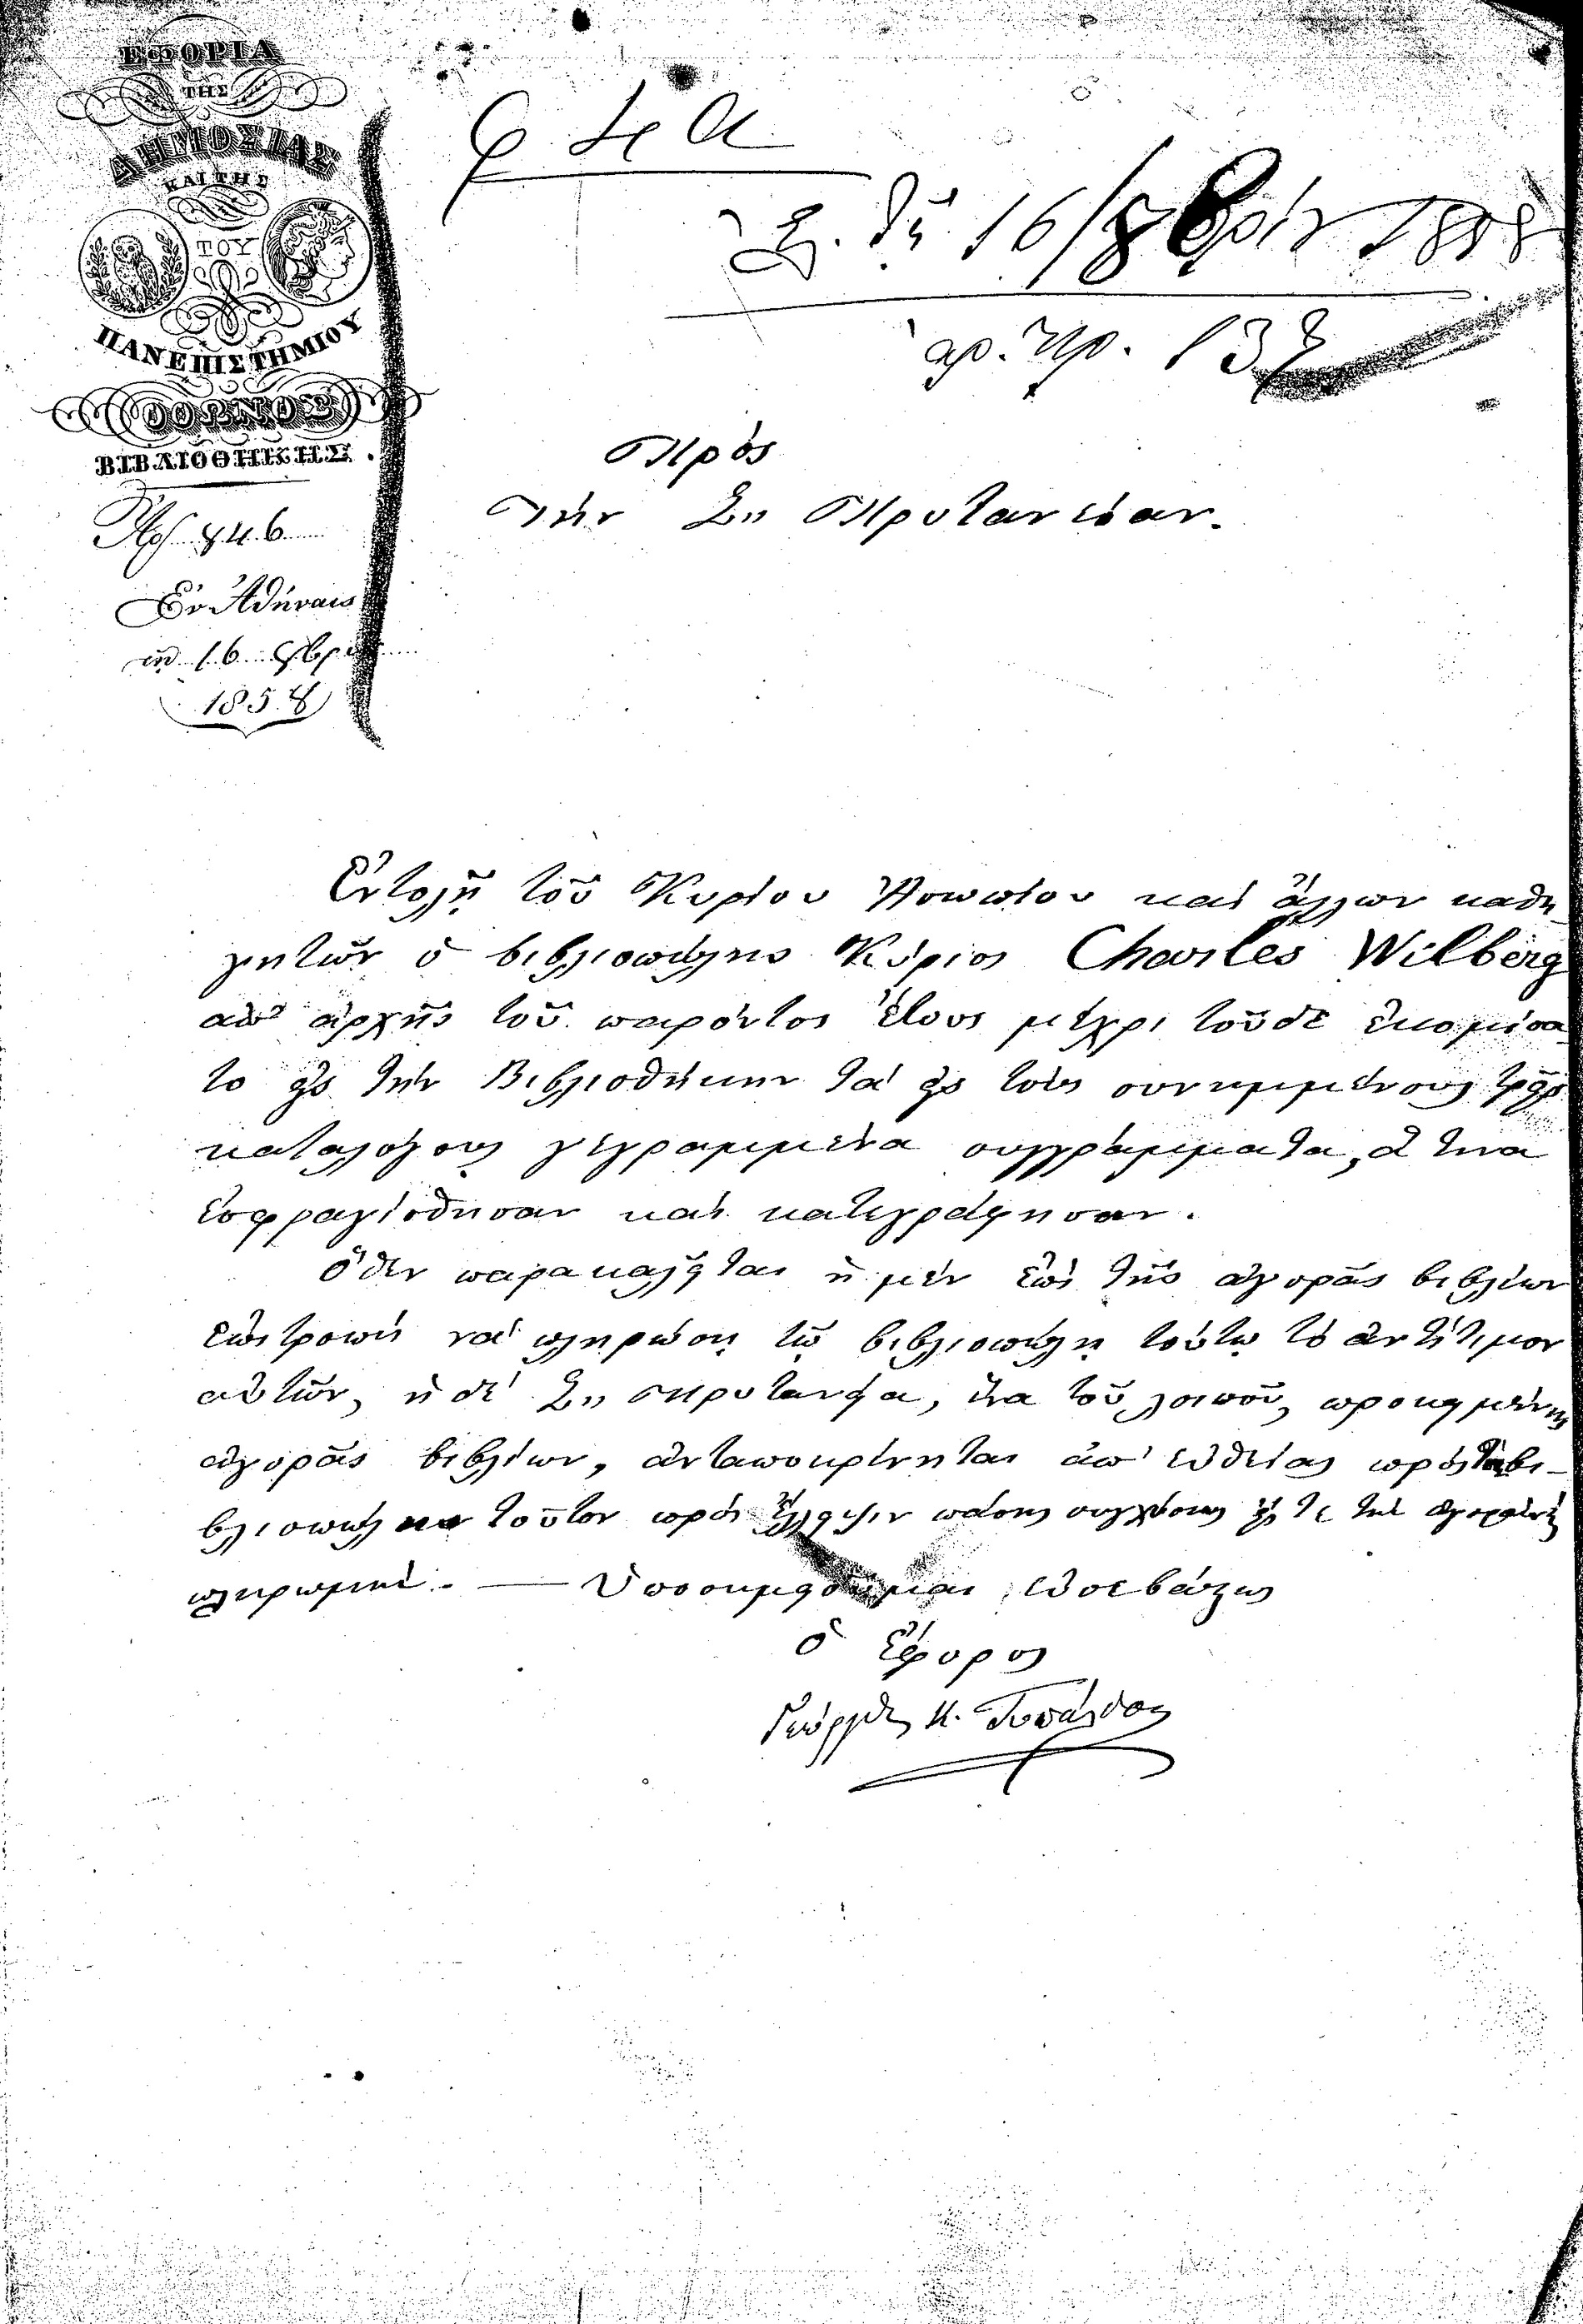 ΕΦΟΡΙΑ
ΤΗΣ
ΔΗΜΟΣΙΑΣ
ΚΑΙ ΤΗΣ
ΤΟΥ
ΠΑΝΕΠΙΣΤΗΜΙΟΥ
ΟΘΩΝΟΣ
ΒΙΒΛΙΟΘΗΚΗΣ.
846
Ἐν Ἀθήναις
τῇ 16 8βρίου
1858
τῇ 16/8βρίου 1858
ἀρ. πρ. 137
Πρὸς
τὴν Σην Πρυτανείαν.
Ἐντολῇ τοῦ Κυρίου Ἀσωπίου καὶ ἄλλων καθη-
γητῶν ὁ βιβλιοπώλης Κύριος Charles Wilberg
ἀπ' ἀρχῆς τοῦ παρόντος ἔτους μέχρι τοῦδε ἐκομίσα-
το εἰς τὴν Βιβλιοθήκην τὰ εἰς τοὺς συνημμένους τρεῖς
καταλόγους γεγραμμένα συγγράμματα, ἅτινα
ἐσφραγίσθησαν καὶ κατεγράφησαν.
Ὅθεν παρακαλεῖται ἡ μὲν ἐπὶ τῆς ἀγορᾶς βιβλίων
ἐπιτροπὴ νὰ πληρώσῃ τῷ βιβλιοπώλῃ τούτῳ τὸ ἀντίτιμον
αὐτῶν, ἡ δὲ Ση Πρυτανεία, ἵνα τοῦ λοιποῦ, προκειμένης
ἀγορᾶς βιβλίων, ἀνταποκρίνηται ἀπ' εὐθείας πρὸς τὸν βι-
βλιοπώλην τοῦτον πρὸς ἔλλειψιν πάσης συγχύσεως εἴς τε τὴν ἀγορὰν καὶ
πληρωμήν. — Ὑποσημειοῦμαι εὐσεβάστως
ὁ Ἔφορος
Γεώργιος Κ. Τυπάλδος